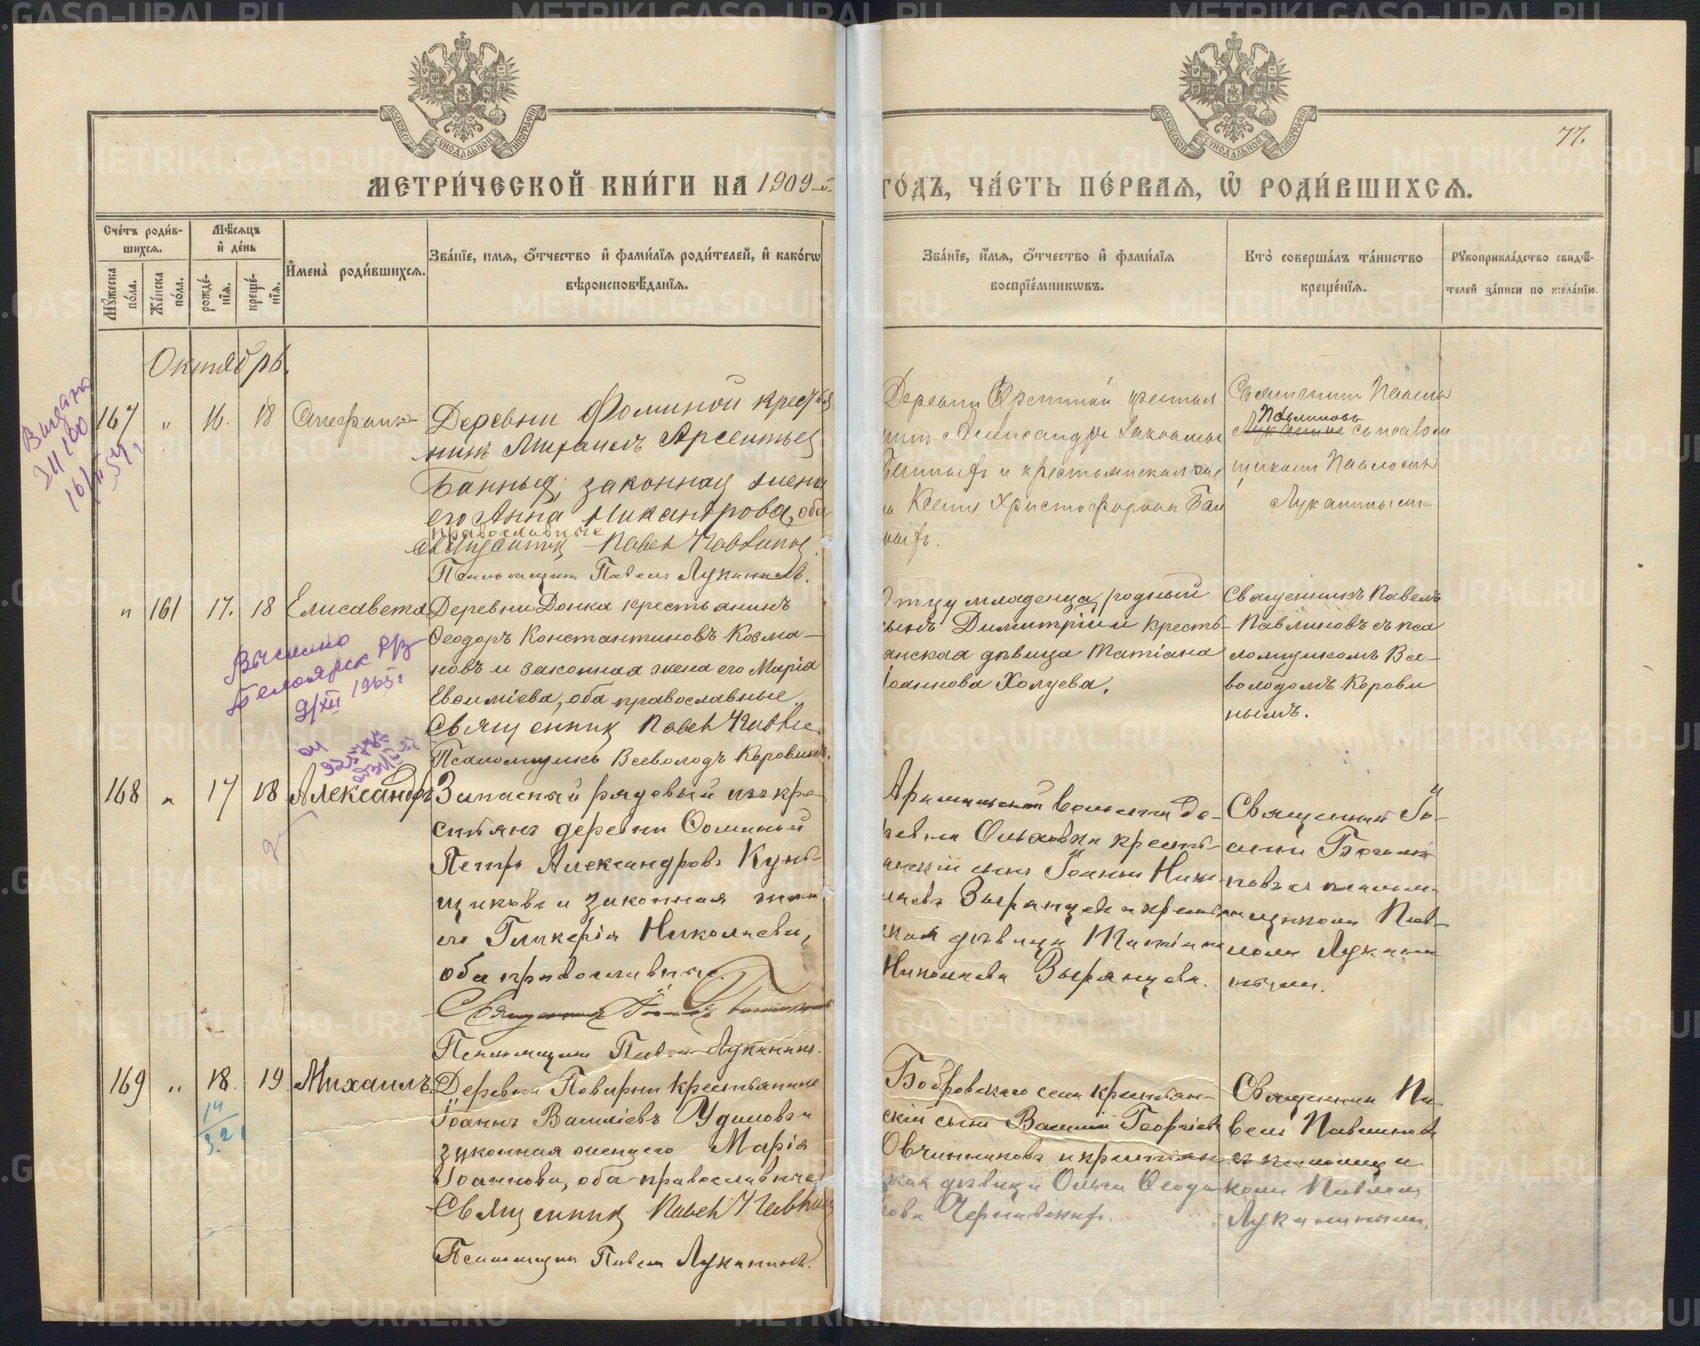 МЕТРИ́ЧЕСКОЙ КНИ́ГИ НА 1909-й
ГО́ДЪ, ЧА́СТЬ ПЕ́РВАЯ, Ѡ҆ РОДИ́ВШИХСѦ.
77.
Сче́тъ роди́в-
шихсѧ.
Мѣ́сѧцъ
и҆ де́нь
Мꙋ́жеска по́ла.
Же́нска по́ла.
рожде́-
нїѧ.
креще́-
нїѧ.
И҆мена̀ роди́вшихсѧ.
Зва́нїе, имѧ, о҆́тчество и҆ фами́лїѧ роди́телей, и҆ како́гѡ
вѣроисповѣ́данїѧ.
Зва́нїе, и҆́мѧ, о҆́тчество и҆ фами́лїѧ
воспрїе́мникѡвъ.
Кто̀ соверша́лъ та́инство
креще́нїѧ.
Рꙋкоприкла́дство свидѣ́-
телей за́писи по жела́нїю.
Октябрь
167 " 16. 18 Стефанъ
Деревни Фоминой крестья
нинъ Михаилъ Арсентьев
Банных, законная жена
его Анна Никандрова, оба
православные
Священник Павел Павлинов.
Псаломщикъ Павелъ Луканинъ.
Александръ
Ксения Христофорова Бан
ныхъ.
Священник Павелъ
Павлиновъ
съ псалом
щикомъ Павломъ
Луканиным
" 161 17. 18 Елисавета
Деревни Донка крестьянинъ
Ѳеодоръ Константиновъ Козма-
новъ и законная жена его Марія
Евѳиміева, оба православные.
Священник Павел Павли.
Псаломщикъ Всеволодъ Коровинъ.
Отцу младенца родный
сынъ Димитрій и кресть-
янская дѣвица Татіана
Іоаннова Холуева.
Священникъ Павелъ
Павлиновъ съ пса
ломщикомъ Все-
володомъ Корови
нымъ.
168 " 17 18 Александръ
Запасный рядовый изъ кре-
стьянъ деревни Ѳоминой
Петръ Александровъ Кунь-
щиковъ и законная жена
его Гликерія Николаева,
оба православные.
Священникъ
Псаломщикъ Павелъ Луканинъ.
Арамильской волости де-
ревни Ольховки кресть-
янскій сынъ Іоаннъ Нико-
лаевъ Зырянцевъ и крестьян
ская дѣвица Татіана
Николаева Зырянцева.
Священникъ Іо-
аннъ
съ псалом-
щикомъ Пав-
ломъ Лукани-
нымъ.
169 " 18. 19 Михаилъ
Деревни Поварни крестьянинъ
Іоаннъ Василіевъ Удиловъ и
законная жена его Марія
Іоаннова, оба православные
Священник Павел Павлин
Псаломщикъ Павелъ Луканинъ.
Бобровскаго села крестьян-
скій сынъ Василій Георгіевъ
Овчинниковъ и крестьян
ская дѣвица Ольга Ѳеодо
рова Чернавскихъ.
Священникъ Па-
велъ Павлиновъ
съ псаломщи
комъ Павломъ
Луканинымъ.
Выдано
16/II 54 г
Выслано
Белоярск Р/З
9/XII 1965 г
14
3. 2
METRIKI.GASO-URAL.RU